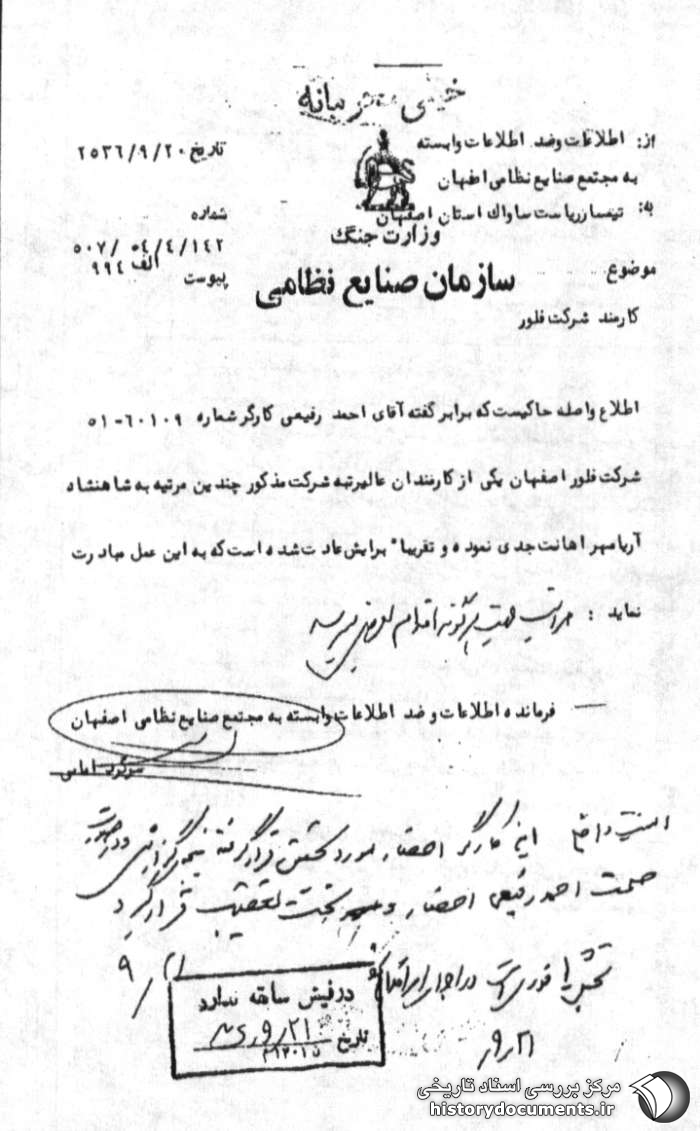 خیلی محرمانه
از: اطلاعات وضد اطلاعات وابسته
به مجتمع صنایع نظامی اصفهان
به: تیمسار ریاست ساواك استان اصفهان
وزارت جنگ
سازمان صنایع نظامی
تاریخ ۲۵۳۶/۹/۲۰
شماره
۵۰۷/ ۰۴/۴/۱۴۲
الف ۹۹۴
پیوست
موضوع
کارمند شرکت فلور
اطلاع واصله حاکیست که برابر گفته آقای احمد رفیعی کارگر شماره ۶۰۱۰۹-۵۱
شرکت فلور اصفهان یکی از کارمندان عالیرتبه شرکت مذکور چندین مرتبه به شاهنشاه
آریامهر اهانت جدی نموده و تقریبا" برایش عادت شده است که به این عمل مبادرت
نماید : مراتب جهت هرگونه اقدام بعرض میرسد
فرمانده اطلاعات و ضد اطلاعات وابسته به مجتمع صنایع نظامی اصفهان
امنیت داخلی این کارگر احضار مورد تحقیق قرار گرفته نتیجه گزارش و در صورت
صحت احمد رفیعی احضار و تحت تعقیب قرار گیرد
۲۱ / ۹
در فیش سابقه ندارد
تاریخ ۲۱ر۹ر۳۶
۲۱ر۹
مرکز بررسی اسناد تاریخی
historydocuments.ir